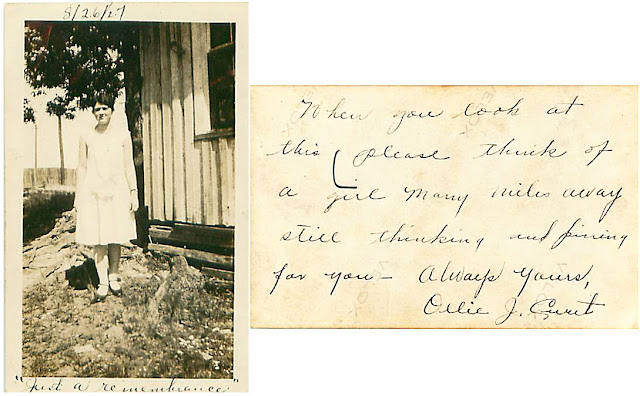 8/26/27
"Just a remembrance"
When you look at
this ( please think of
a girl many miles away
still thinking and pining
for you — Always yours,
Ollie J.